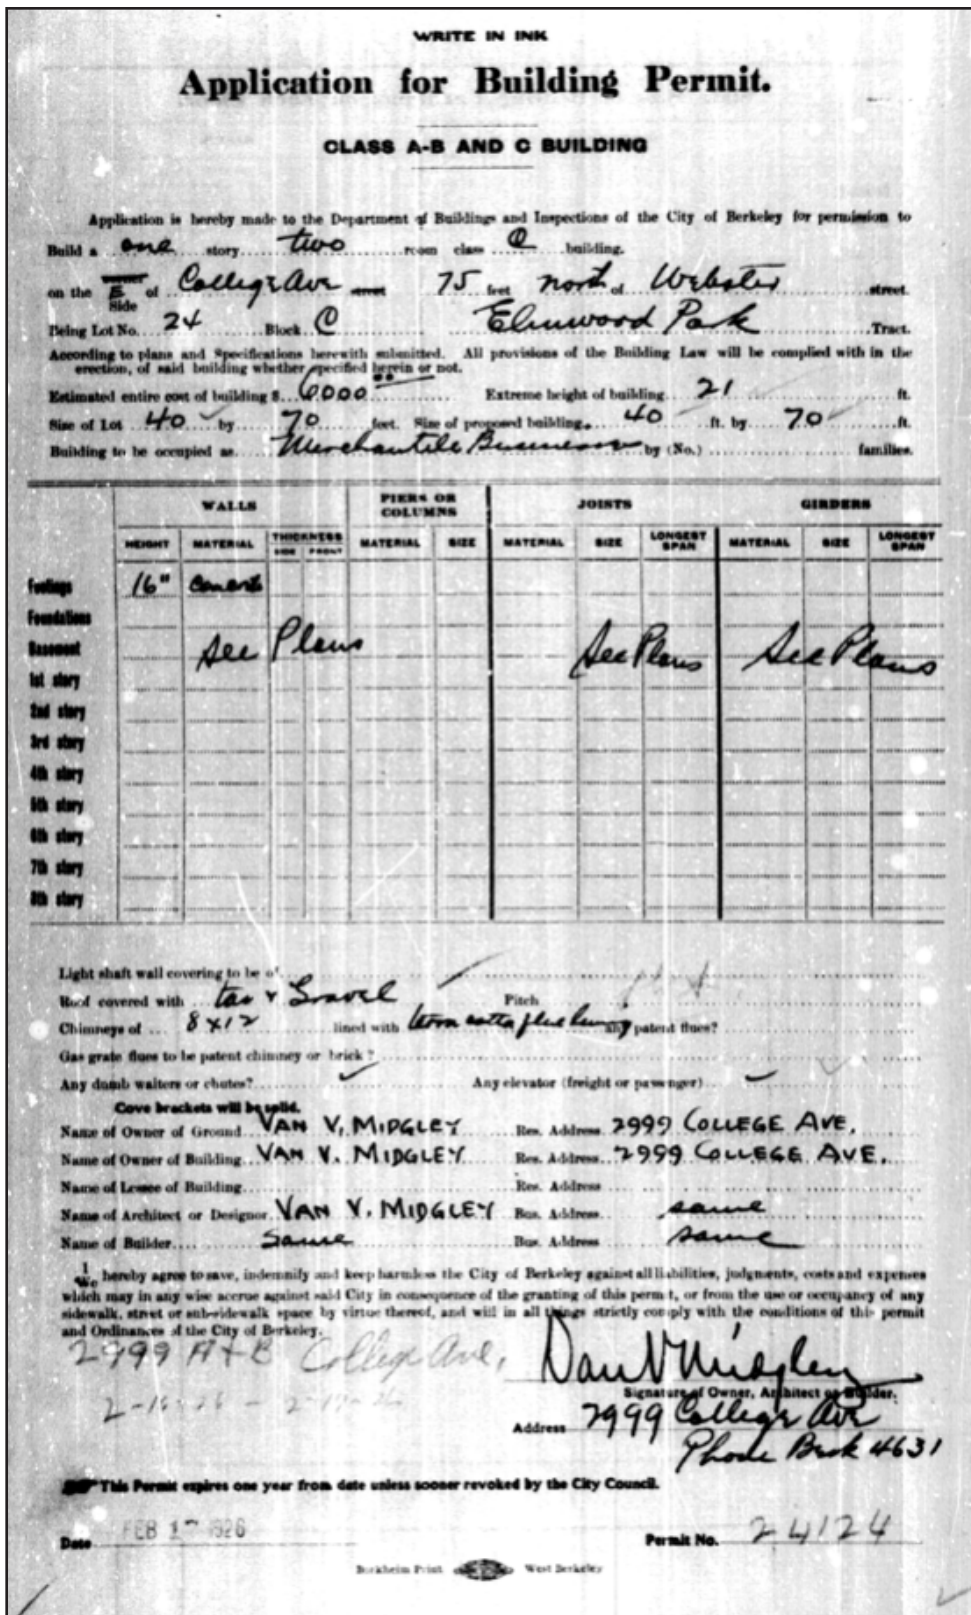 WRITE IN INK
Application for Building Permit.
CLASS A-B AND C BUILDING
Application is hereby made to the Department of Buildings and Inspections of the City of Berkeley for permission to
Build a one story two room class C building.
on the E Side of College Ave street 75 feet north of Webster street.
Being Lot No. 24 Block C Elmwood Park Tract.
According to plans and Specifications herewith submitted. All provisions of the Building Law will be complied with in the
erection, of said building whether specified herein or not.
Estimated entire cost of building $ 6000 Extreme height of building 21 ft.
Size of Lot 40 by 70 feet. Size of proposed building. 40 ft. by 70 ft.
Building to be occupied as Merchantile Business by (No.) families.
WALLS PIERS OR COLUMNS JOISTS GIRDERS
HEIGHT MATERIAL THICKNESS SIDE FRONT MATERIAL SIZE MATERIAL SIZE LONGEST SPAN MATERIAL SIZE LONGEST SPAN
Footings 16" Concrete
Foundations
Basement See Plans See Plans See Plans
1st story
2nd story
3rd story
4th story
5th story
6th story
7th story
8th story
Light shaft wall covering to be of
Roof covered with tar & Gravel Pitch
Chimneys of 8x12 lined with terra cotta flue lining any patent flues?
Gas grate flues to be patent chimney or brick?
Any dumb waiters or chutes? Any elevator (freight or passenger)
Cove brackets will be solid.
Name of Owner of Ground VAN V. MIDGLEY Res. Address 2999 COLLEGE AVE.
Name of Owner of Building VAN V. MIDGLEY Res. Address 2999 COLLEGE AVE.
Name of Lessee of Building Res. Address
Name of Architect or Designor VAN V. MIDGLEY Bus. Address same
Name of Builder same Bus. Address same
I We hereby agree to save, indemnify and keep harmless the City of Berkeley against all liabilities, judgments, costs and expenses
which may in any wise accrue against said City in consequence of the granting of this permit, or from the use or occupancy of any
sidewalk, street or sub-sidewalk space by virtue thereof, and will in all things strictly comply with the conditions of this permit
and Ordinances of the City of Berkeley.
2999 A+B College Ave.
Van V Midgley
Signature of Owner, Architect or Builder.
2-16-26
Address 2999 College Ave
Phone Berk 4631
This Permit expires one year from date unless sooner revoked by the City Council.
Date FEB 17 1926 Permit No. 24124
Borkheim Print West Berkeley